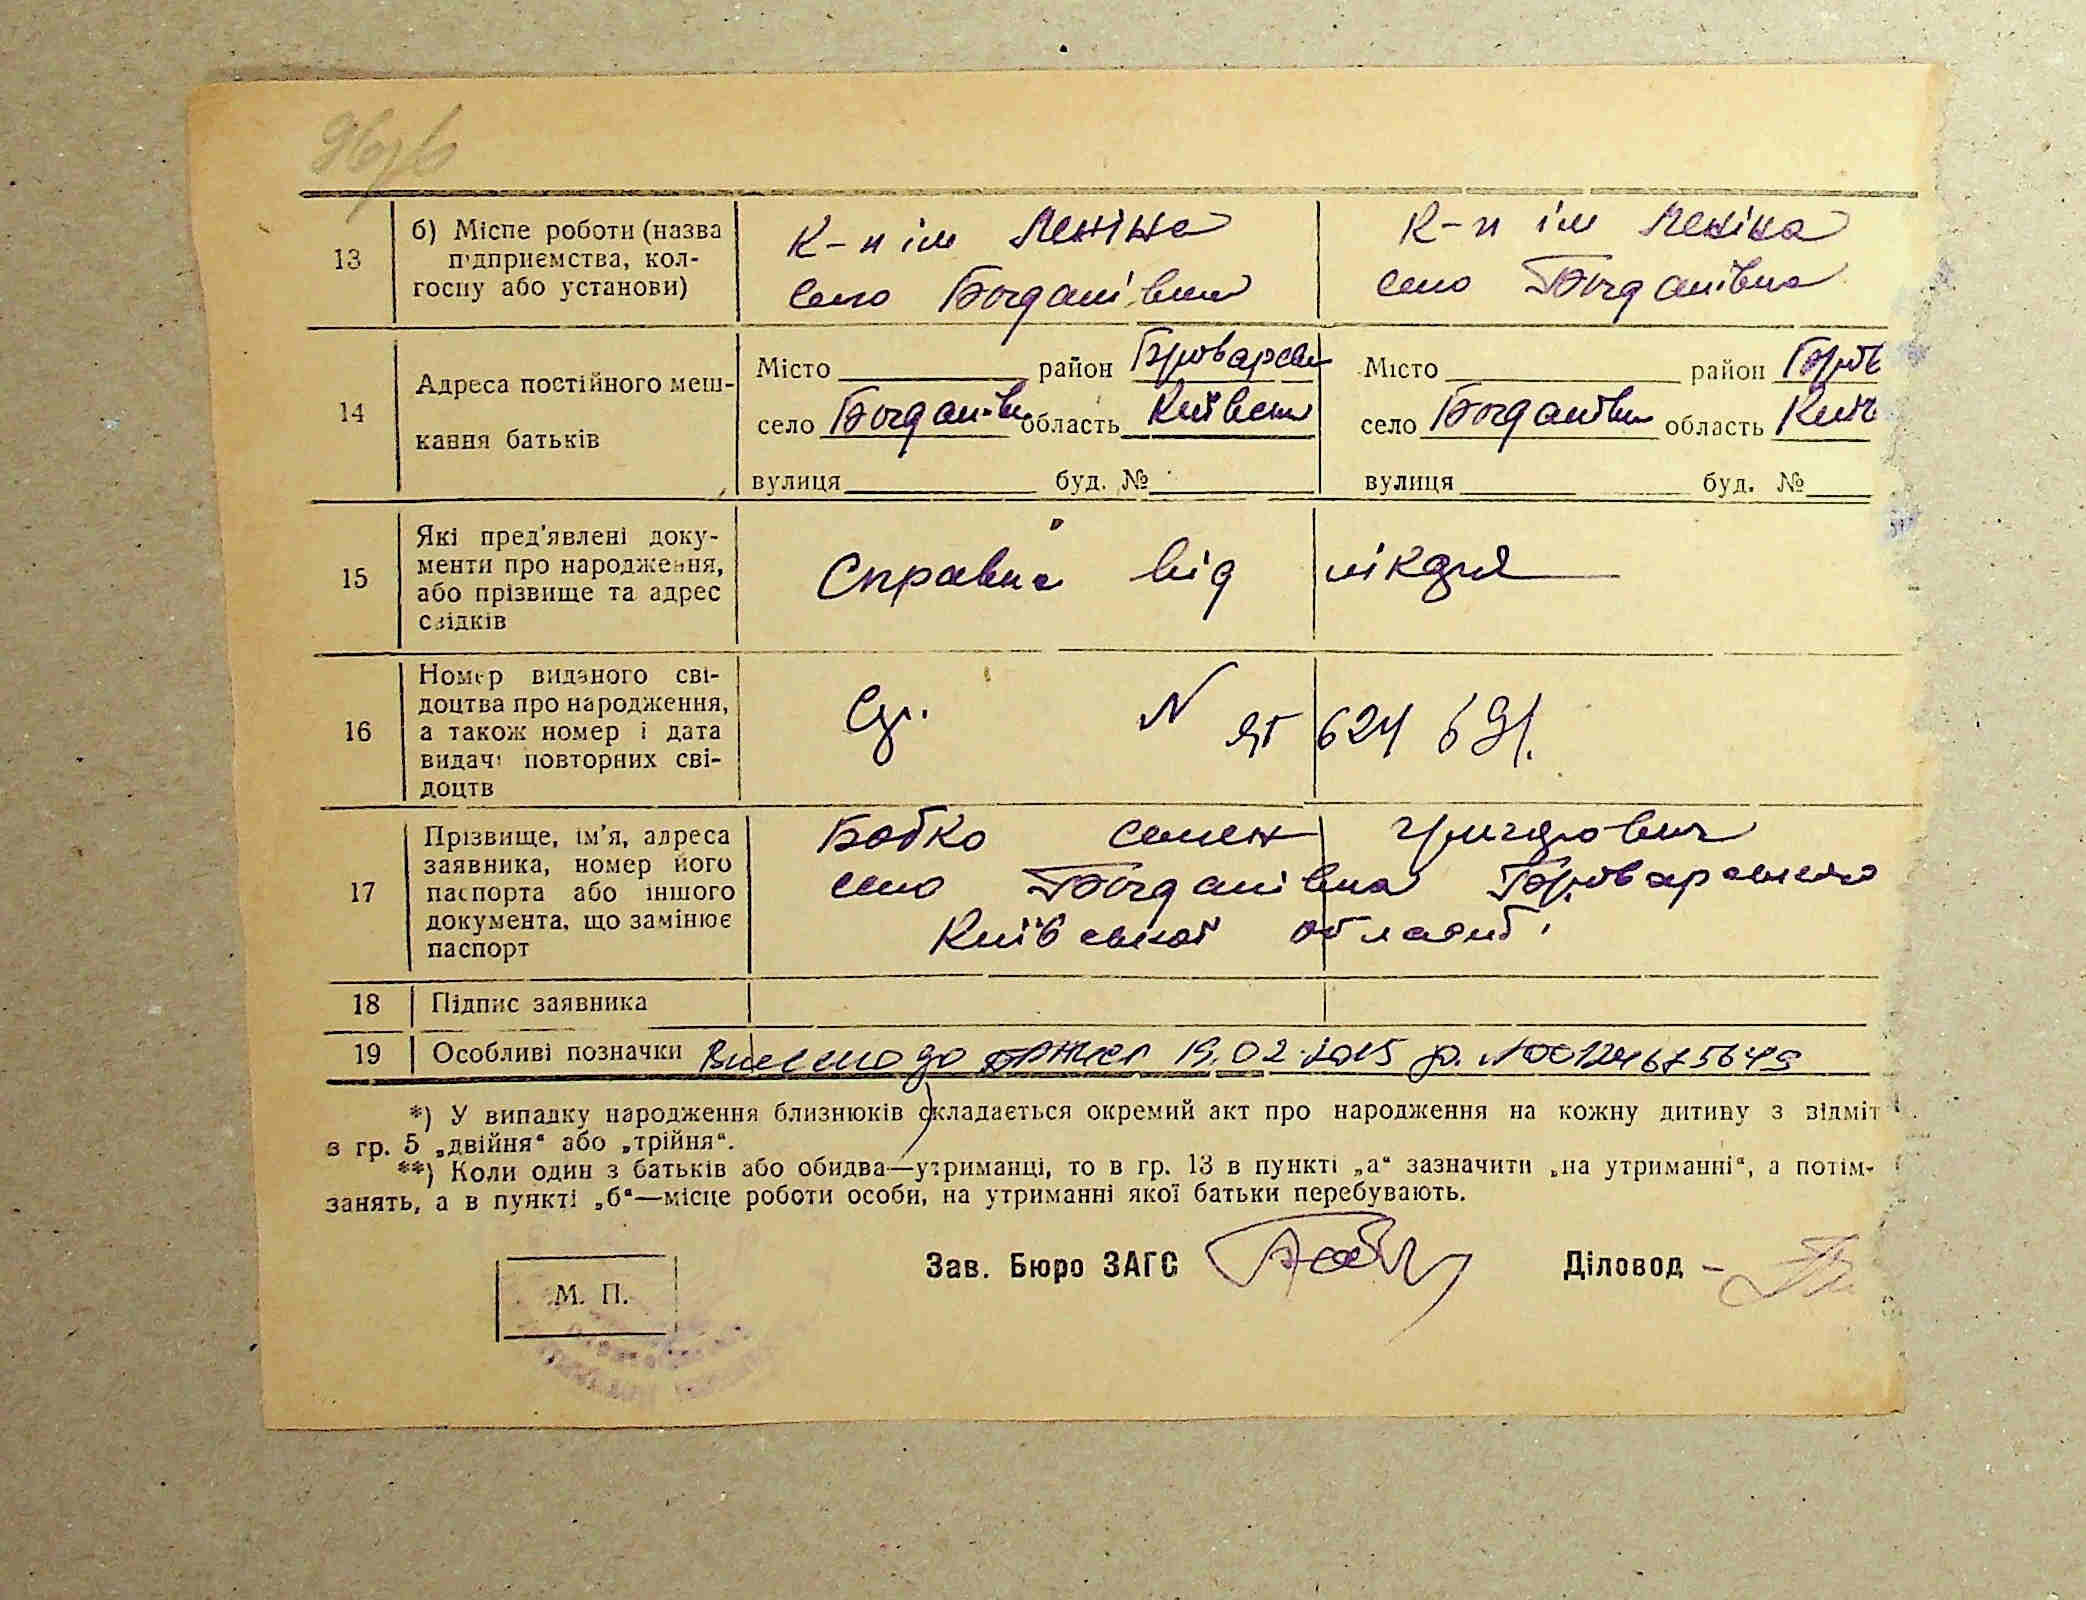 13
б) Місце роботи (назва підприємства, колгоспу або установи)
К-п ім Леніна
село Богданівка
К-п ім Леніна
село Богданівка
14
Адреса постійного мешкання батьків
Місто район Броварськ
село Богданівк область Київськ
вулиця буд. №
Місто район Бров
село Богданівк область Київ
вулиця буд. №
15
Які пред'явлені документи про народження, або прізвище та адрес свідків
Справка від лікаря
16
Номер виданого свідоцтва про народження, а також номер і дата видачі повторних свідоцтв
N ЯТ 624 691.
17
Прізвище, ім'я, адреса заявника, номер його паспорта або іншого документа, що замінює паспорт
Бобко Семен Григорович
село Богданівка Броварського
Київської області
18
Підпис заявника
19
Особливі позначки Внесено до ДРАЦСГ 19.02.2015 р. №00124675649
*) У випадку народження близнюків складається окремий акт про народження на кожну дитину з відміт
в гр. 5 „двійня“ або „трійня“.
**) Коли один з батьків або обидва—утриманці, то в гр. 13 в пункті „а“ зазначити „на утриманні“, а потім-
занять, а в пункті „б“—місце роботи особи, на утриманні якої батьки перебувають.
Зав. Бюро ЗАГС
Діловод -
М. П.